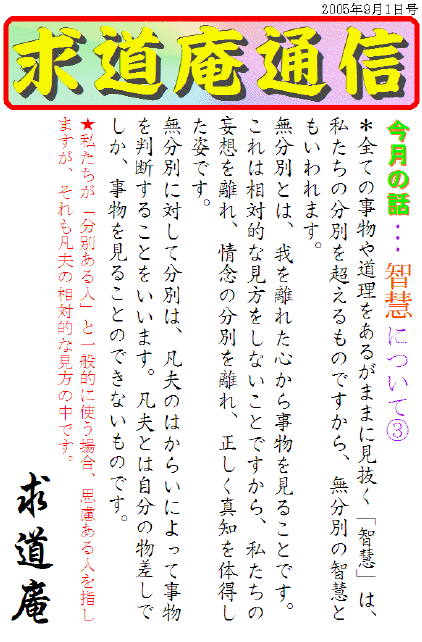 2005年9月1日号
求道庵通信
今月の話・・・智慧について③
＊全ての事物や道理をあるがままに見抜く「智慧」は、
私たちの分別を超えるものですから、無分別の智慧と
もいわれます。
無分別とは、我を離れた心から事物を見ることです。
これは相対的な見方をしないことですから、私たちの
妄想を離れ、情念の分別を離れ、正しく真知を体得し
た姿です。
無分別に対して分別は、凡夫のはからいによって事物
を判断することをいいます。凡夫とは自分の物差しで
しか、事物を見ることのできないものです。
★私たちが「分別ある人」と一般的に使う場合、思慮ある人を指し
ますが、それも凡夫の相対的な見方の中です。
求道庵